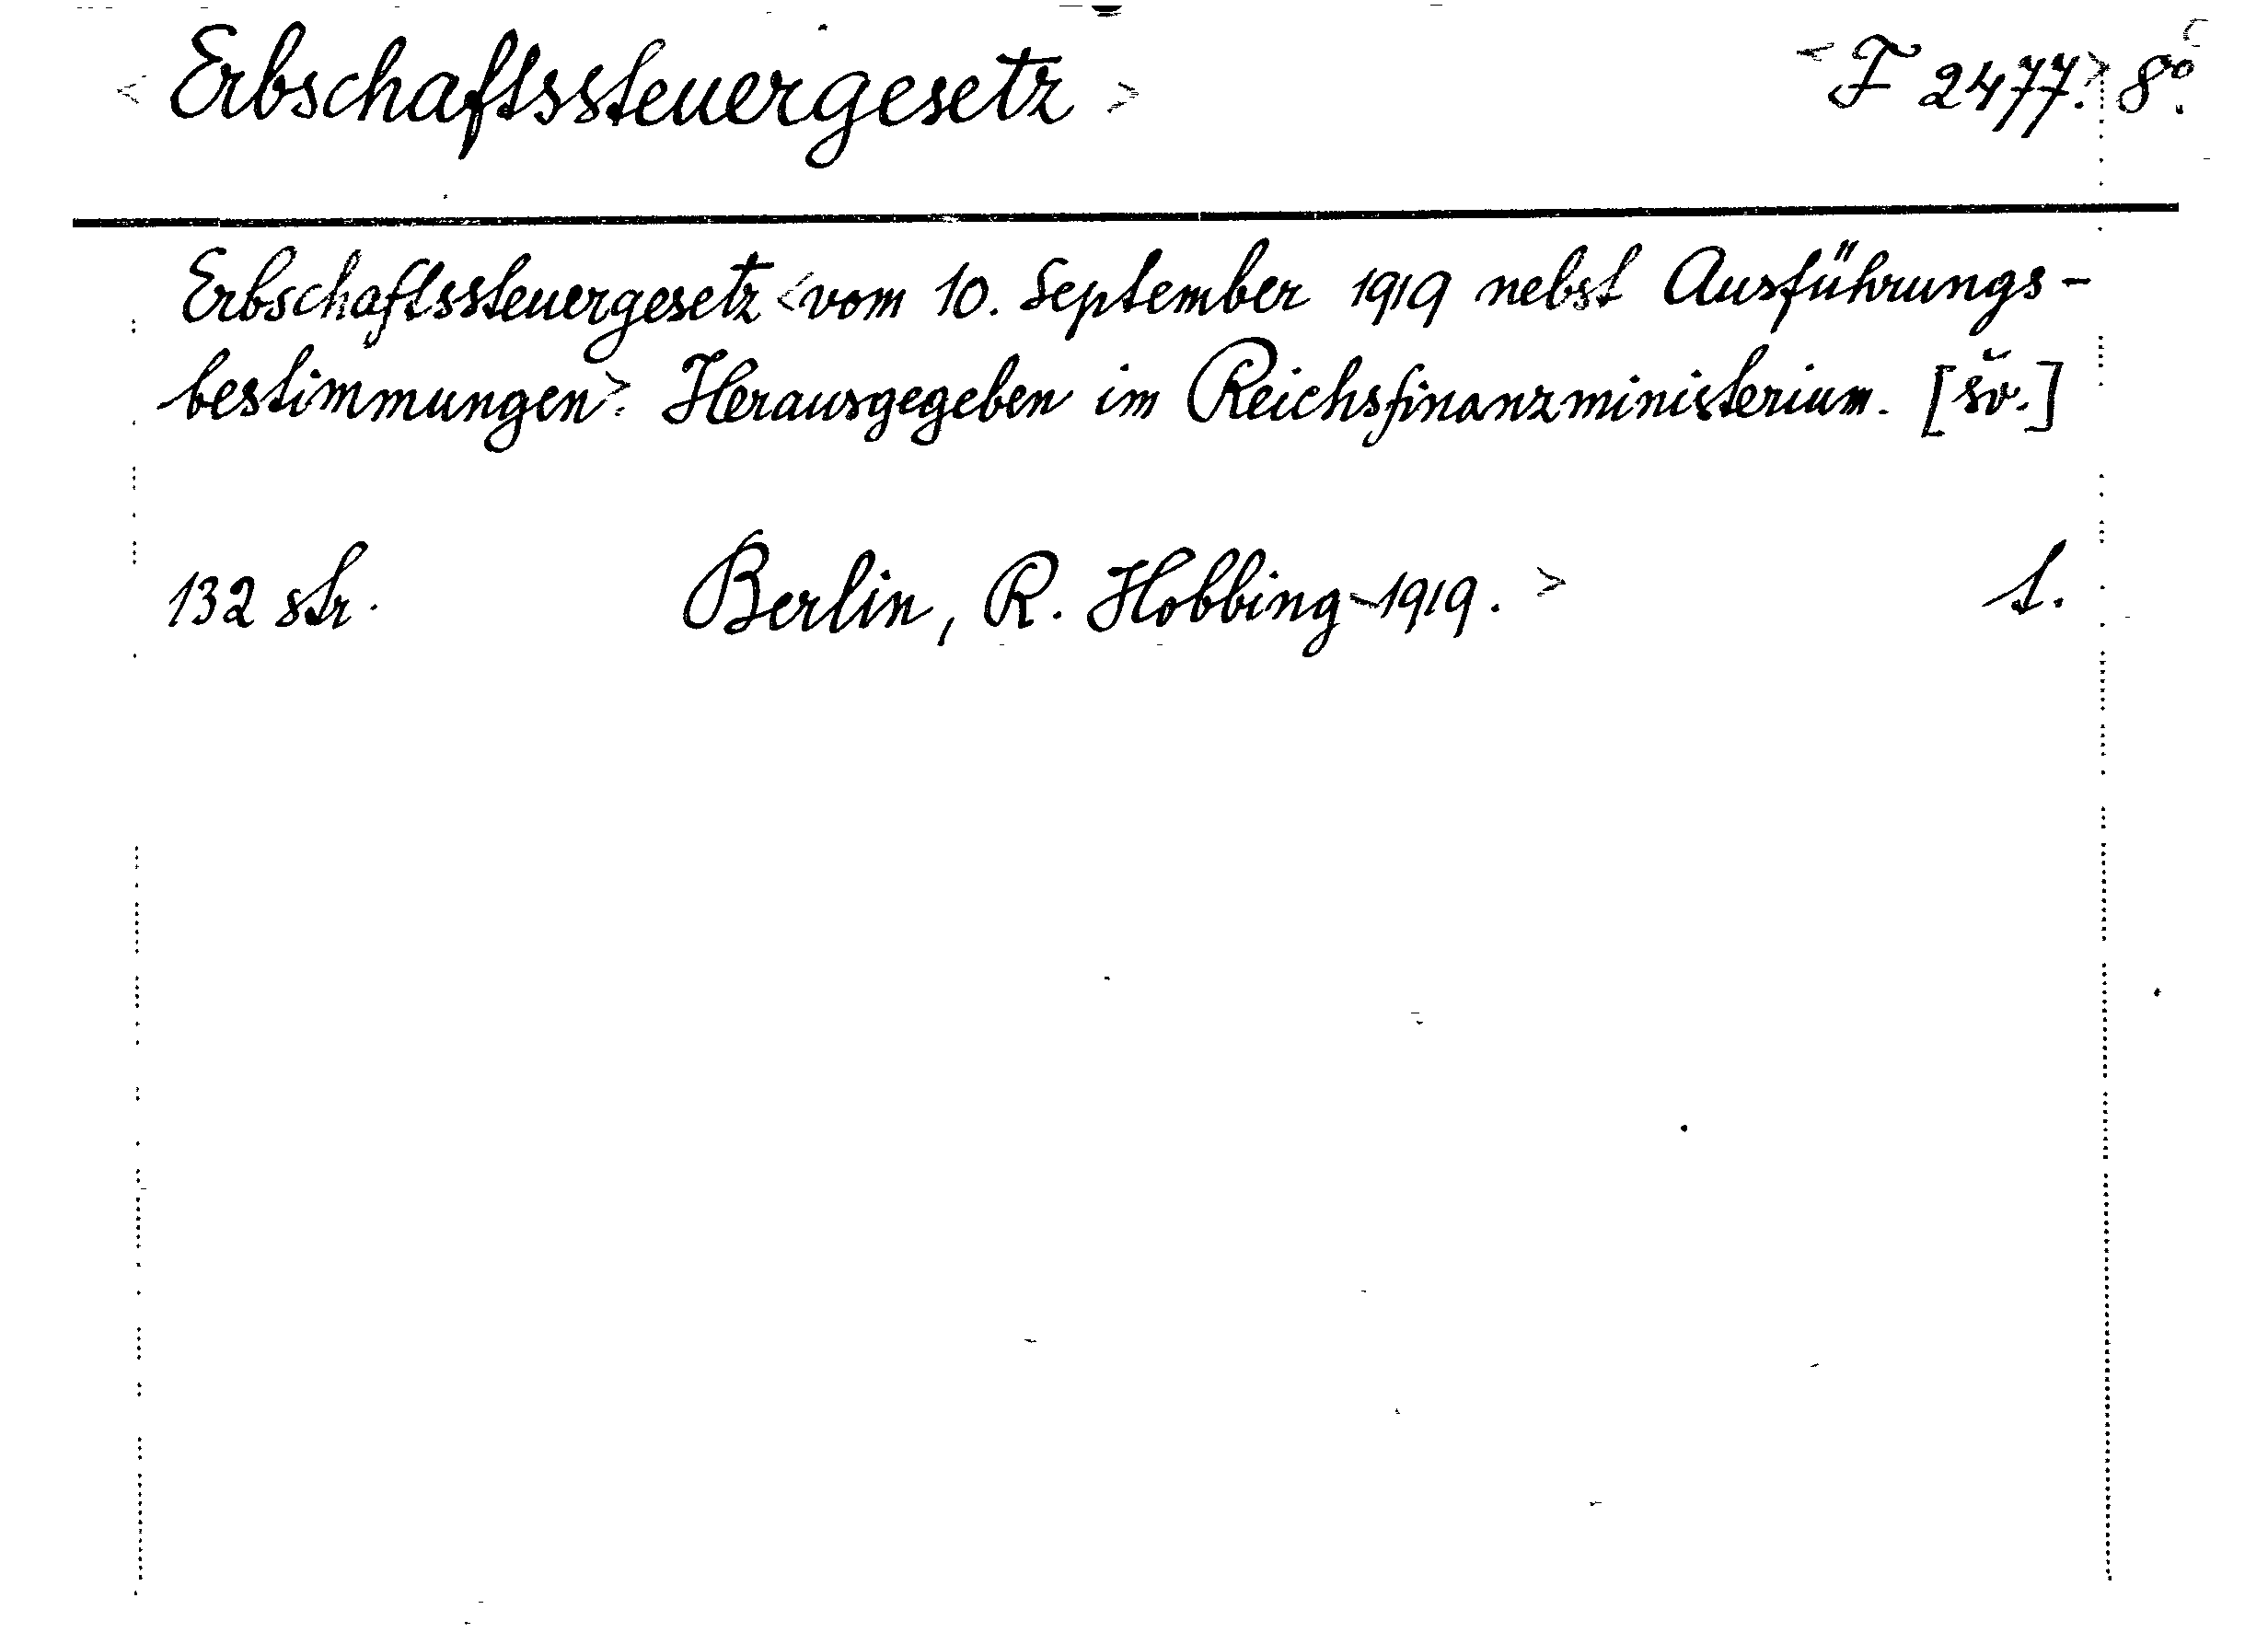 < Erbschaftssteuergesetz >
< F 2477. > 8°.
Erbschaftssteuergesetz < vom 10. September 1919 nebst Ausführungs-
bestimmungen >. Herausgegeben im Reichsfinanzministerium. [šv.]
132 str. Berlin, R. Hobbing - 1919. > 1.